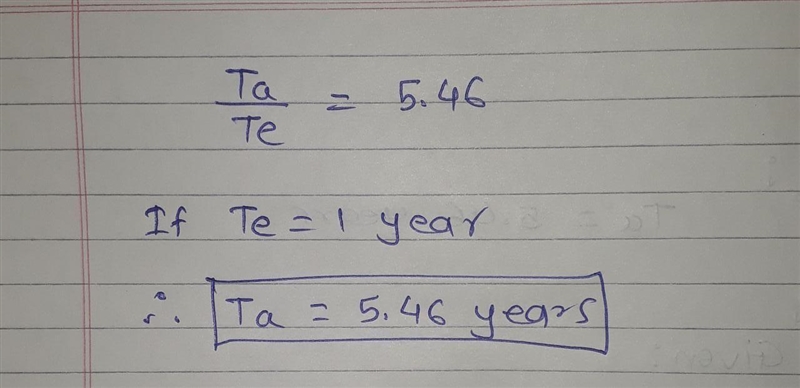 Ta
Te = 5.46
If Te = 1 year
∴ Ta = 5.46 years